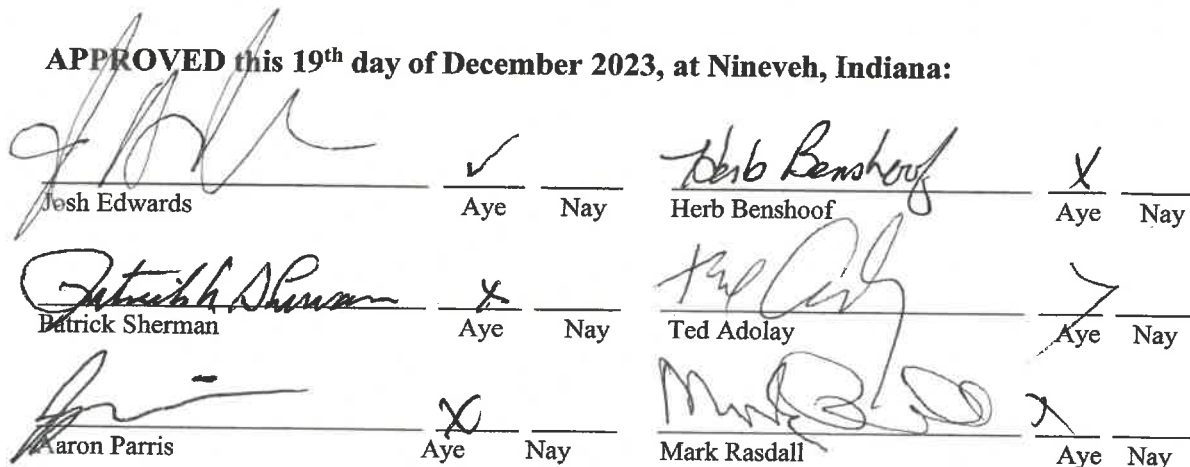 APPROVED this 19th day of December 2023, at Nineveh, Indiana:
Herb Benshoof X
Josh Edwards Aye Nay Herb Benshoof Aye Nay
Patrick A Sherman X
Patrick Sherman Aye Nay Ted Adolay Aye Nay
X
Aaron Parris Aye Nay Mark Rasdall Aye Nay